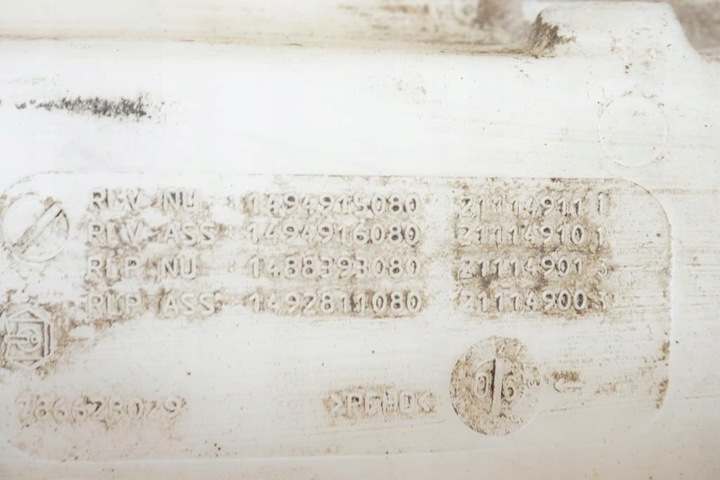 RIV NU : 1494915080 21114911 1
RIV ASS : 1494916080 21114910 1
RLP NU : 1488393080 21114901 3
RLP ASS : 1492811080 21114900 3
06